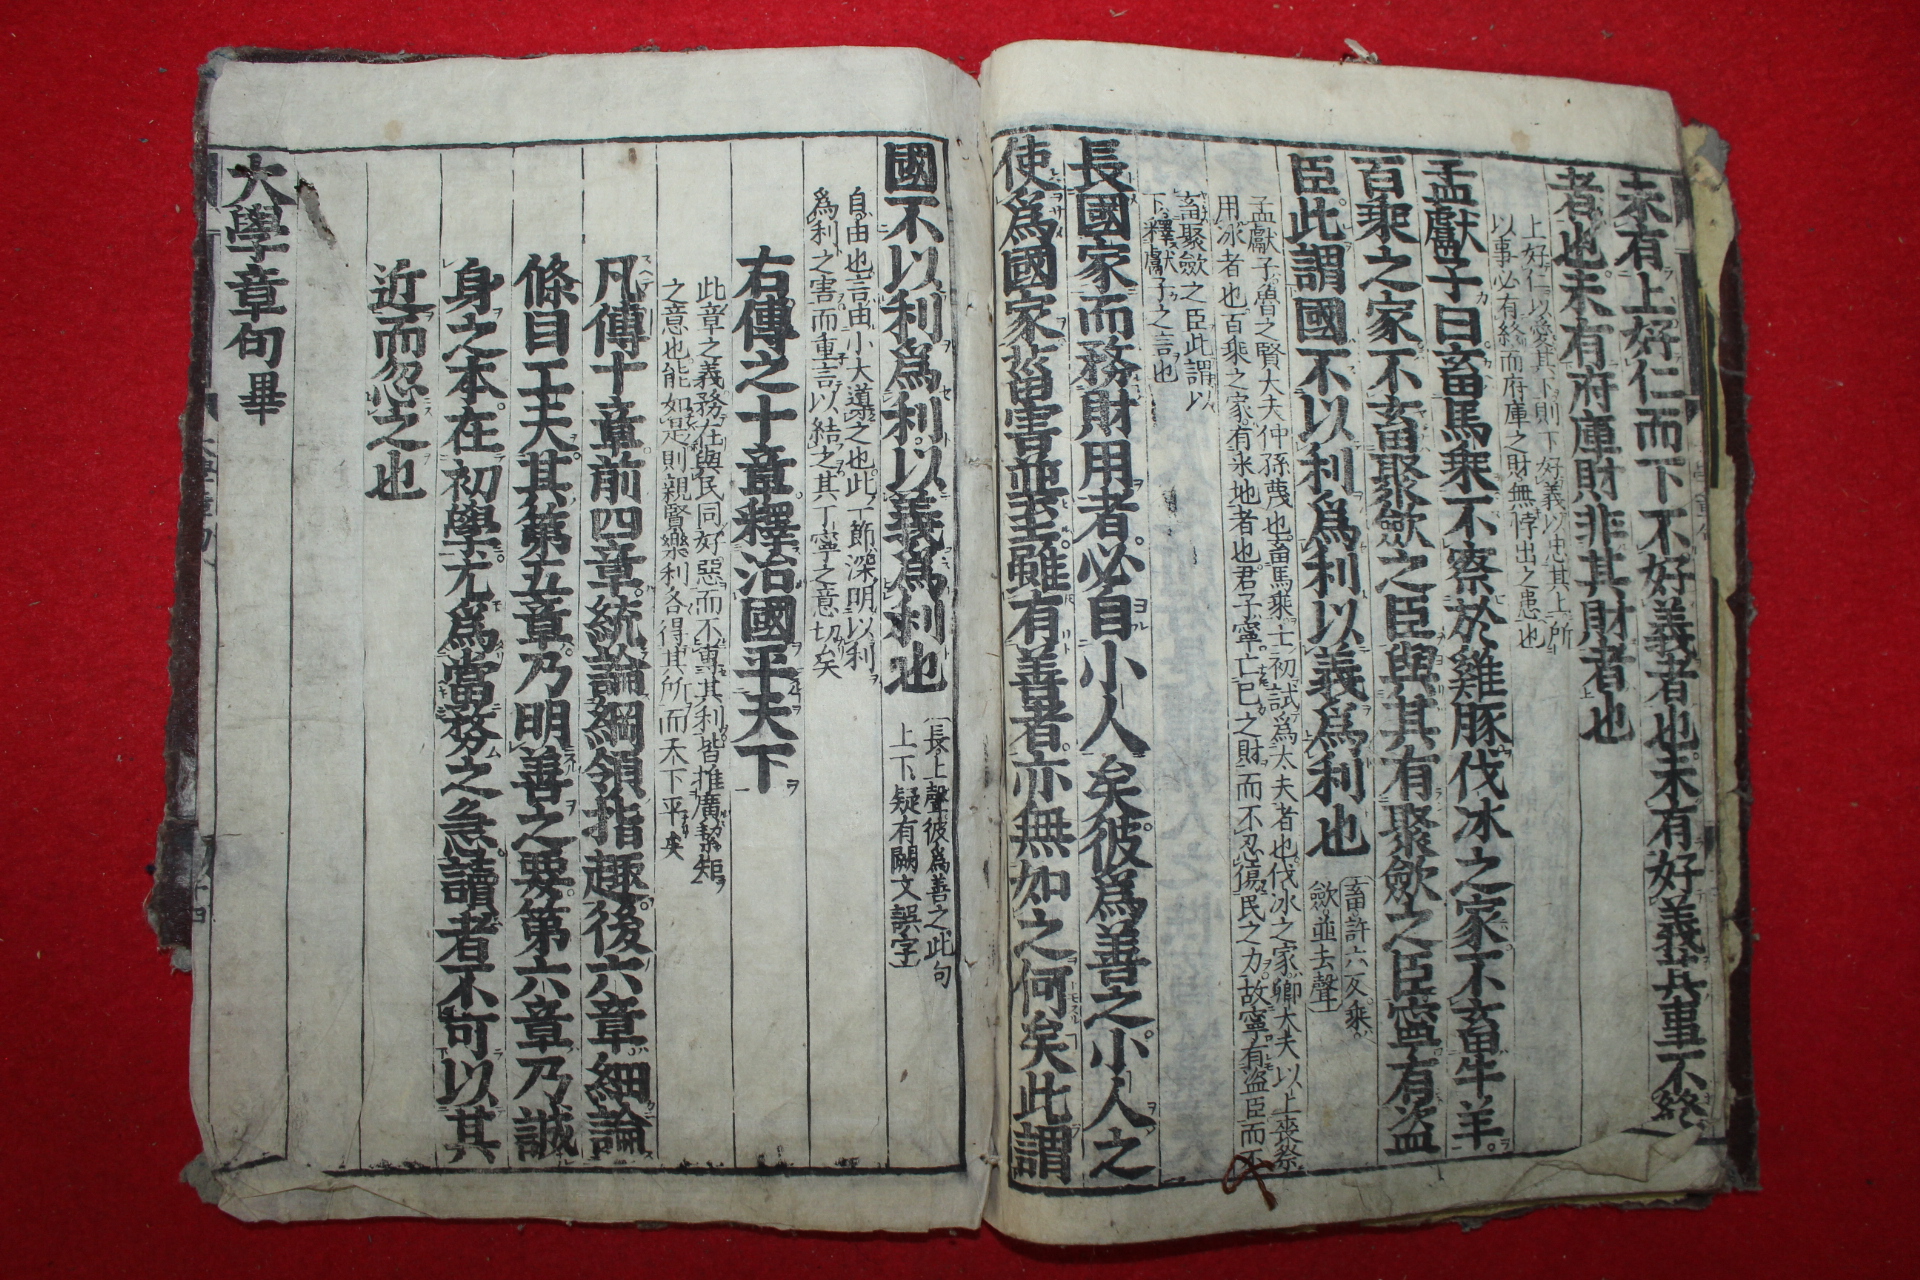 未有上好仁而下不好義者也未有好義其事不終
者也未有府庫財非其財者也
上好仁以愛其下則下好義以忠其上所
以事必有終而府庫之財無悖出之患也
孟獻子曰畜馬乘不察於雞豚伐冰之家不畜牛羊
百乘之家不畜聚斂之臣與其有聚斂之臣寧有盜
臣此謂國不以利爲利以義爲利也
畜許六反乘
斂並去聲
孟獻子魯之賢大夫仲孫蔑也畜馬乘士初試爲大夫者也伐冰之家卿大夫以上喪祭
用冰者也百乘之家有采地者也君子寧亡己之財而不忍傷民之力故寧有盜臣而不
畜聚斂之臣此謂以
下釋獻子之言也
長國家而務財用者必自小人矣彼爲善之小人之
使爲國家菑害並至雖有善者亦無如之何矣此謂
國不以利爲利以義爲利也
長上聲彼爲善之此句
上下疑有闕文誤字
自由也言由小大導之也此一節深明以利
爲利之害而重言以結之其丁寧之意切矣
右傳之十章釋治國平天下
此章之義務在與民同好惡而不專其利皆推廣絜矩
之意也能如是則親賢樂利各得其所而天下平矣
凡傳十章前四章統論綱領指趣後六章細論
條目工夫其第五章乃明善之要第六章乃誠
身之本在初學尤爲當務之急讀者不可以其
近而忽之也
大學章句畢